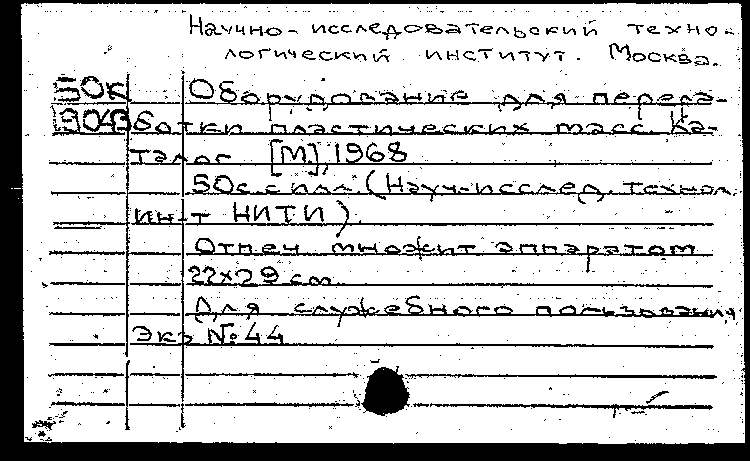 Научно-исследовательский техно-
логический институт. Москва.
50к Оборудование для перера-
19043 ботки пластических масс. Ка-
талог [М], 1968
50с. с илл. (Науч-исслед. технол.
ин-т НИТИ)
Отпеч множит аппаратом
22х29 см
Для служебного пользования
Экз №44